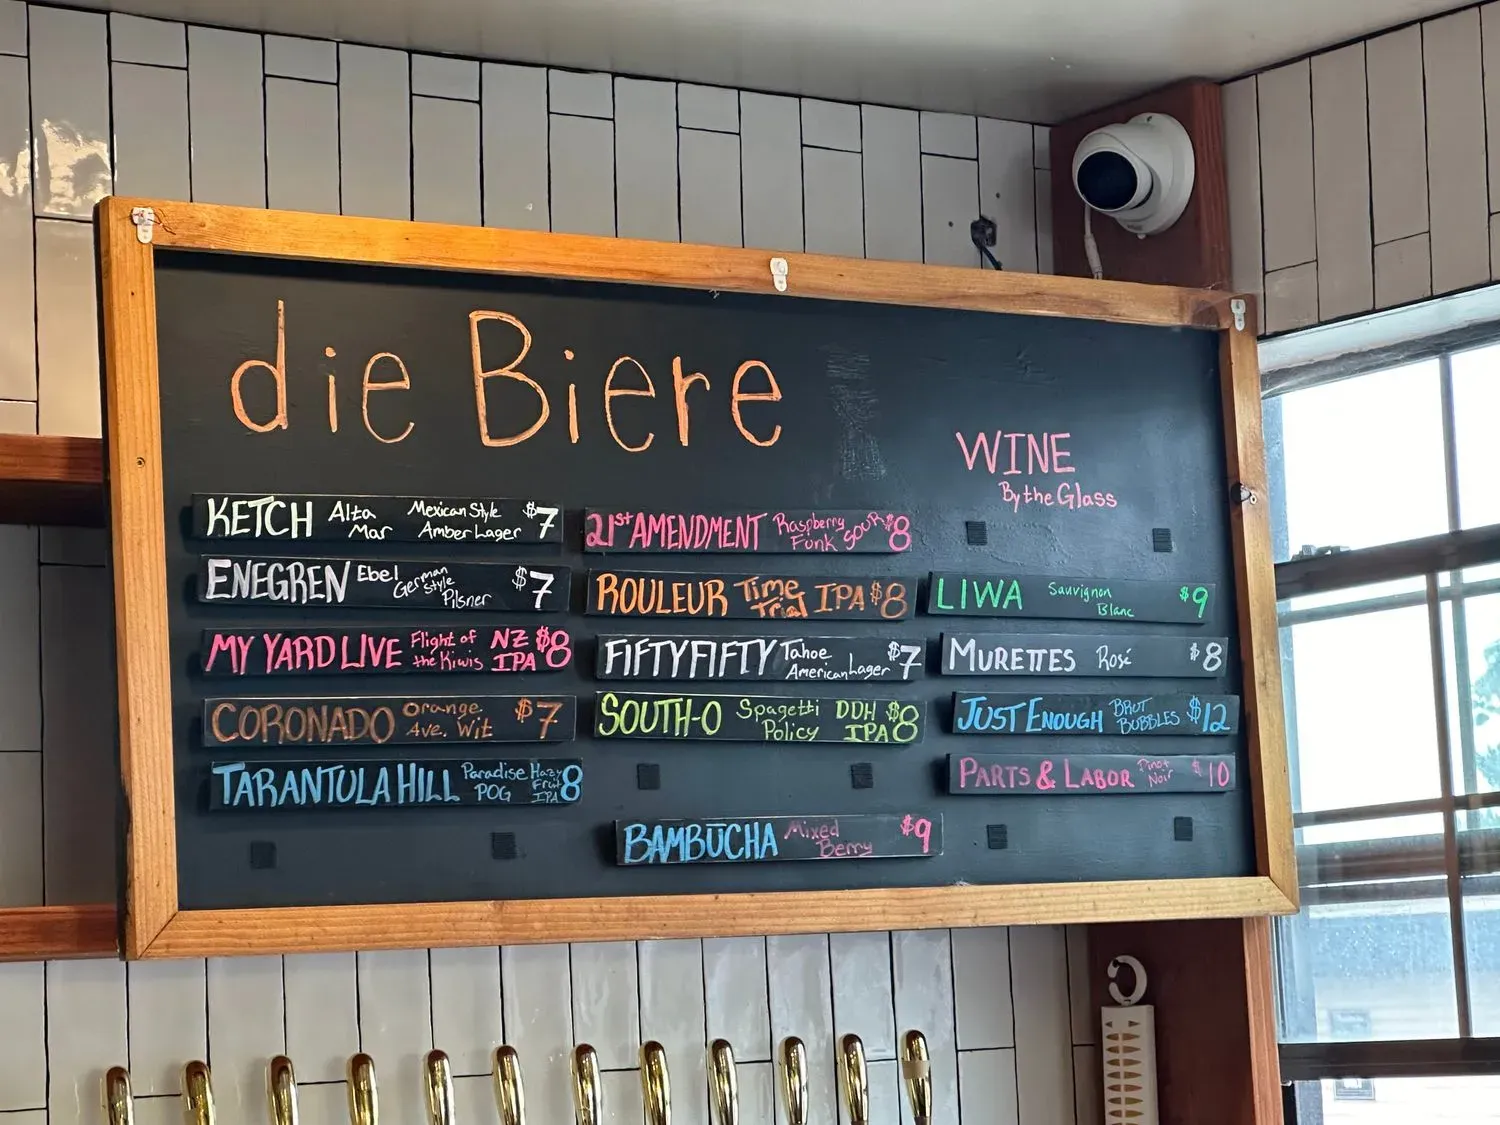 die Biere
KETCH Alta Mar Mexican Style Amber Lager $7
ENEGREN Ebel German Style Pilsner $7
MY YARD LIVE Flight of the Kiwis NZ IPA $8
CORONADO Orange Ave. Wit $7
TARANTULA HILL Paradise POG Hazy Fruit IPA 8
21st AMENDMENT Raspberry Funk SOUR $8
ROULEUR Time Trial IPA $8
FIFTYFIFTY Tahoe American Lager $7
SOUTH-O Spagetti Policy DDH IPA $8
BAMBŪCHA Mixed Berry $9
WINE
By the Glass
LIWA Sauvignon Blanc $9
MURETTES Rosé $8
JUST ENOUGH BRUT BUBBLES $12
PARTS & LABOR Pinot Noir $10